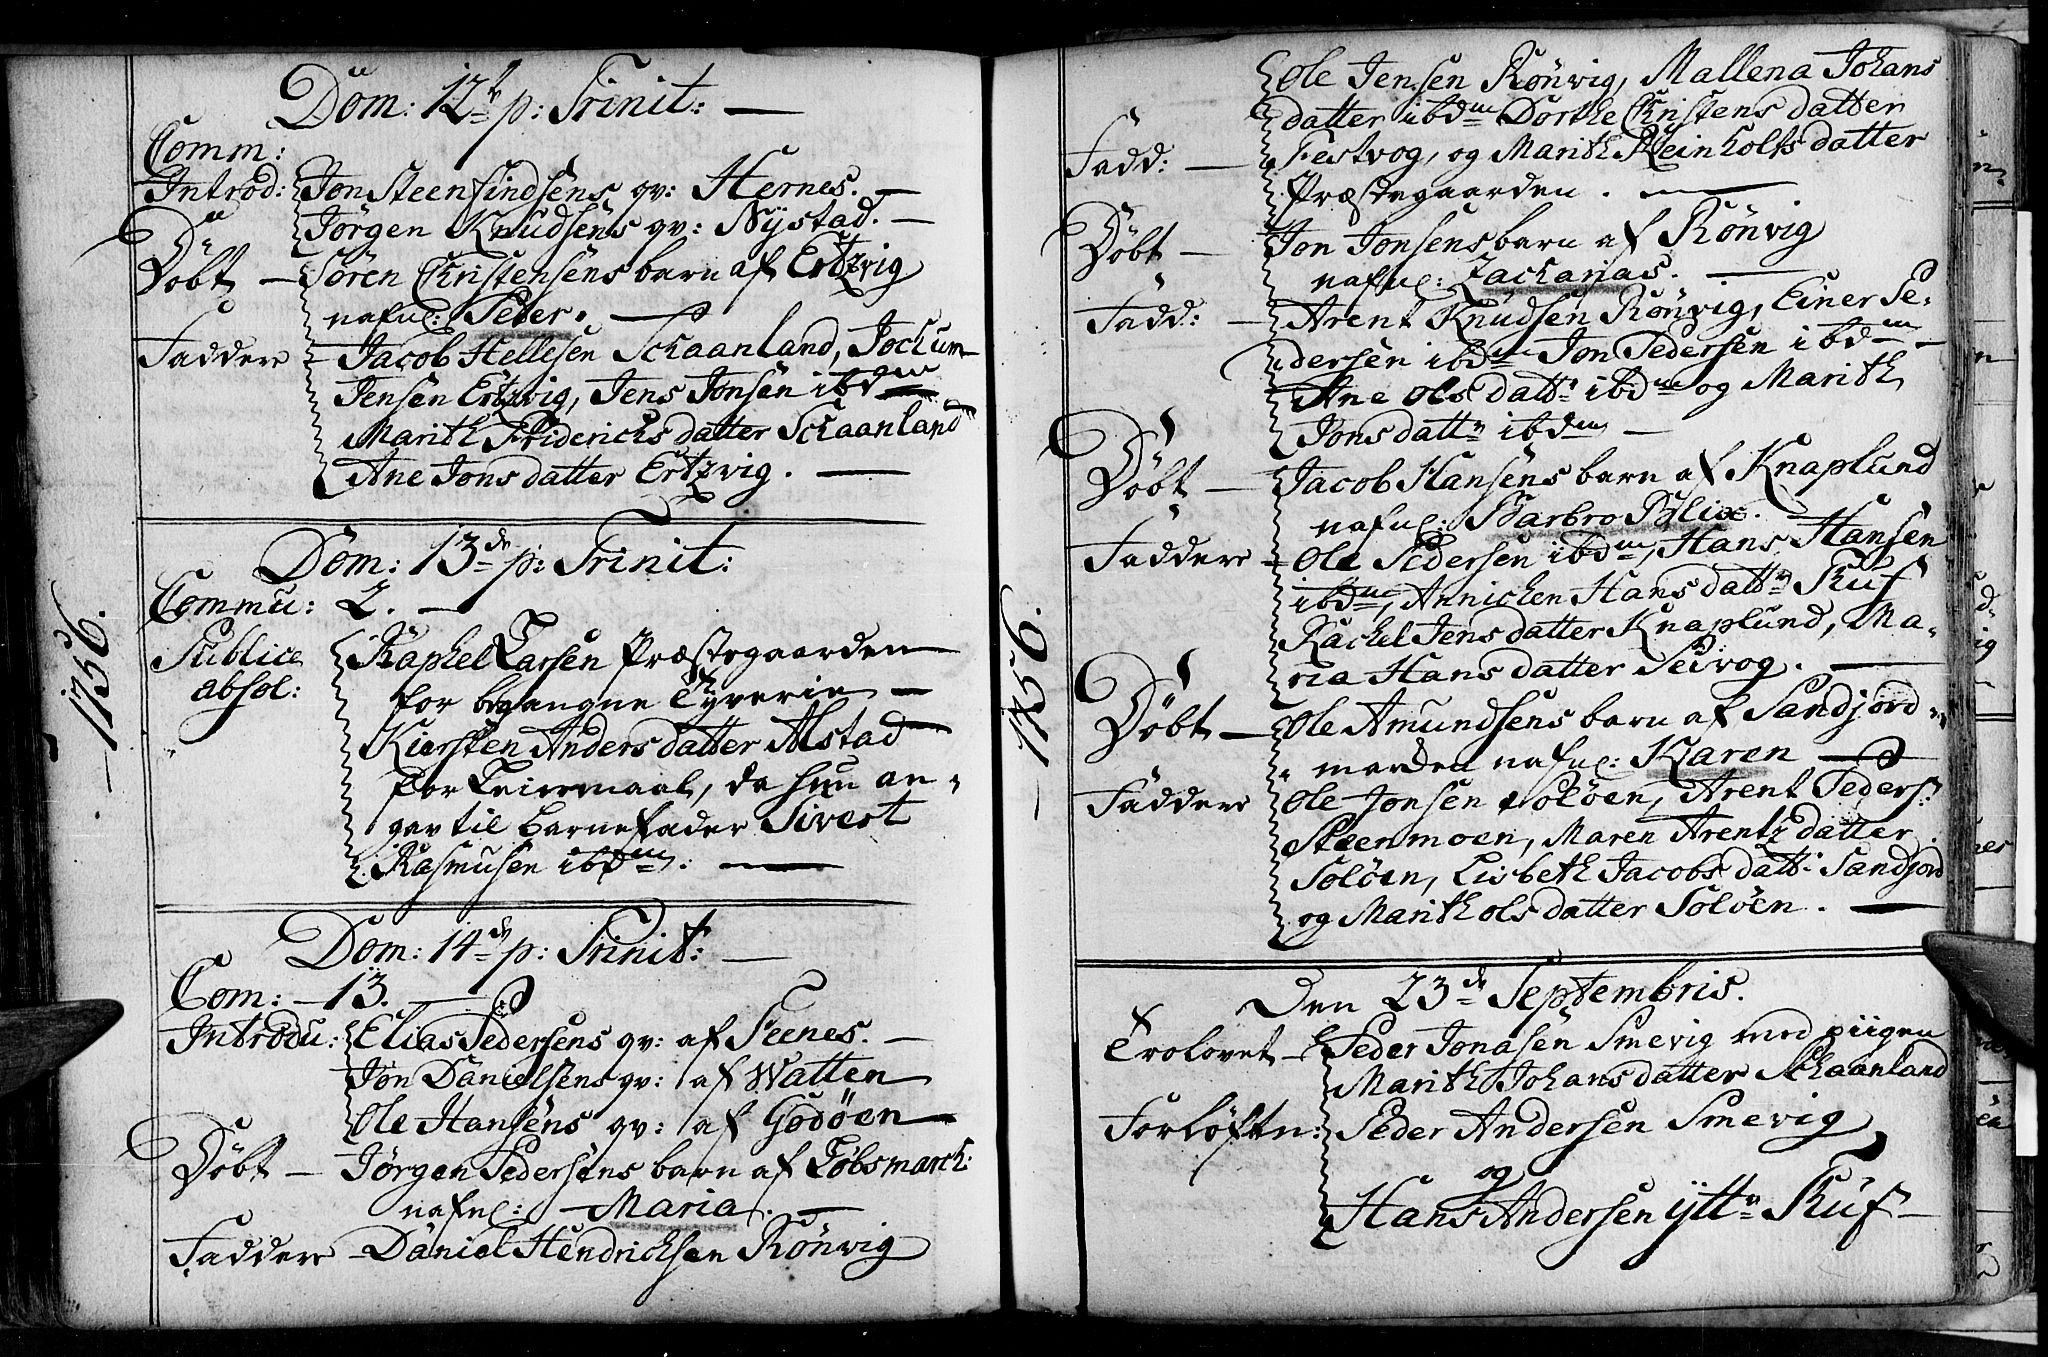 1756.
Dom: 12te p: Trinit:
Comm:
Introd: Jon Steenfindsens qv: Hernes.
Jörgen Knudsens qv: Nÿstad.
Döbt — Sören Christensens barn af Ertzvig
nafnl: Peder.
Faddere — Jacob Hellesen Schaanland, Jochum
Jensen Ertzvig, Jens Jonsen ibdm
Marith Friderichs datter Schaanland
Ane Jons datter Ertzvig.
Dom: 13de p: Trinit:
Commu: 2.
Publice absol: Raphel Larsen Præstegaarden
for begangne Tyverie
Kiersten Anders datter Alstad
for Leiermaal, da hun an-
gav til barnefader Sivert
Rasmusen ibdm.
Dom: 14de p: Trinit:
Com: 13.
Introdu: Elias Pedersens qv: af Seenes.
Jon Danielsens qv: af Watten
Ole Hansens qv: af Godöen
Döbt — Jörgen Pedersens barn af Löbsmarch:
nafnl: — Maria.
Faddere — Daniel Hendrichsen Rönvig
1756.
Ole Jensen Rönvig, Mallena Johans
datter ibdm Dorthe Christens datter
Fadd: — Festvog, og Marith Reinholts datter
Præstegaarden.
Döbt — Jon Jonsens barn af Rönvig
nafnl: Zacharias.
Fadd: — Arent Knudsen Rönvig, Einer Pe-
dersen ibdm Jon Pedersen ibdm
Ane Ols datt: ibdm og Marith
Jons datt: ibdm
Döbt — Jacob Hansens barn af Knaplund
nafnl: Barbro Blix.
Faddere — Ole Pedersen ibdm, Hans Hansen
ibdm, Annichen Hans datt: Skuf
Rachel Jens datter Knaplund, Ma-
ria Hans datter Seivog.
Döbt — Ole Amundsens barn af Sandjord-
marchen nafnl: Karen
Faddere Ole Jonsen Solöen, Arent Peders:
Steenmoen, Maren Arentz datter
Solöen, Lisbeth Jacobs datt: Sandjord
og Marith Ols datter Solöen.
Den 23de Septembris.
Trolovet — Peder Jonasen Smevig med piigen
Marith Johans datter Schaanland
Forlöftn: Peder Andersen Smevig
og
Hans Andersen ÿttr Skuf